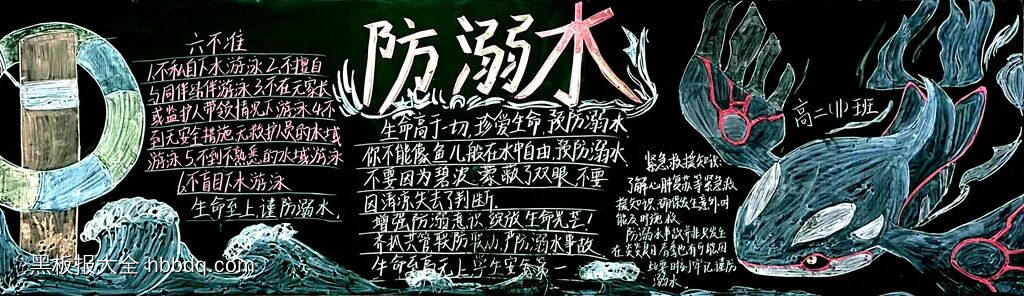 防溺水
六不准
1.不私自下水游泳2.不擅自
与同伴结伴游泳3.不在无家长
或监护人带领情况下游泳4.不
到无安全措施无救护员的水域
游泳5.不到不熟悉的水域游泳
6.不盲目下水游泳
生命至上谨防溺水.
生命高于一切,珍爱生命,预防溺水
你不能像鱼儿般在水中自由,预防溺水
不要因为碧波蒙蔽了双眼,不要
因清凉失去了判断
增强防溺意识 绽放生命光芒!
齐抓共管我防 严防溺水事故
生命至高无上 学生安全第一
高二(11)班
紧急救援知识:
了解心肺复苏等紧急救
援知识,确保发生意外时
能及时施救
防溺水事故并非只发生
在炎炎夏日 春季也有可能因
此要时刻牢记谨防
溺水.
黑板报大全 hbbdq.com